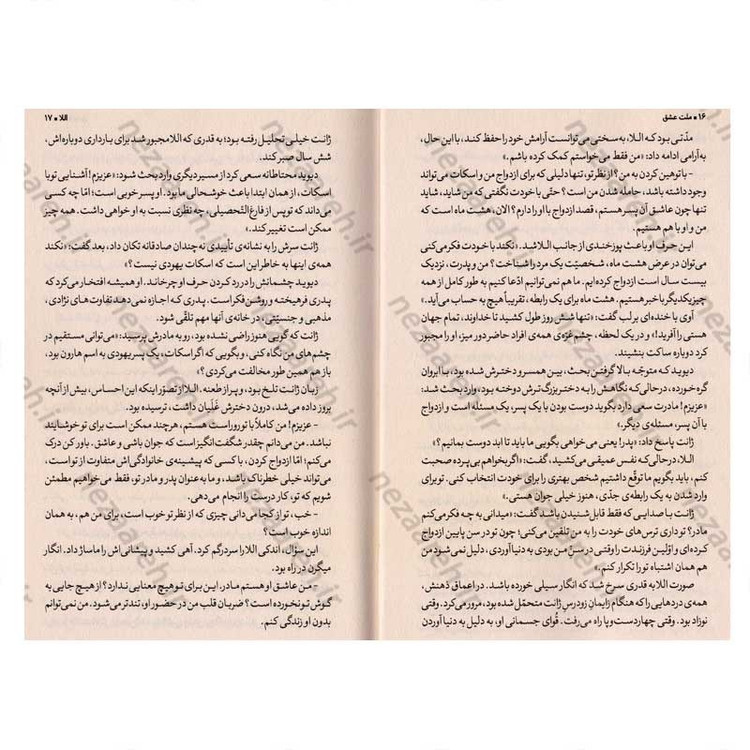 ۱۶ • ملت عشق
مدّتی بود که اللا، به سختی می‌توانست آرامش خود را حفظ کند، با این حال،
به آرامی ادامه داد: «من فقط می‌خواستم کمک کرده باشم.»
- با توهین کردن به من؟ از نظر تو، تنها دلیلی که برای ازدواج من و اسکات می‌تواند
وجود داشته باشد، حامله شدن من است؟ حتّی با خودت نگفتی که من شاید، شاید
تنها چون عاشق آن پسر هستم، قصد ازدواج با او را دارم؟ الان، هشت ماه است که
من و او با هم هستیم.
این حرف او باعث پوزخندی از جانب اللا شد. «نکند با خودت فکر می‌کنی
می‌توان در عرض هشت ماه، شخصیّت یک مرد را شناخت؟ من و پدرت، نزدیک
بیست سال است ازدواج کرده‌ایم. ما هم نمی‌توانیم ادّعا کنیم به طور کامل از همه
چیز یکدیگر باخبر هستیم. هشت ماه برای یک رابطه، تقریباً هیچ به حساب می‌آید.»
آوی با خنده‌ای بر لب گفت: «تنها شش روز طول کشید تا خداوند، تمام جهان
هستی را آفرید!» و در یک لحظه، چشم‌غرّه‌ی همه‌ی افراد حاضر دور میز، او را مجبور
کرد دوباره ساکت بنشیند.
دیوید که متوجّه بالا گرفتن بحث، بین همسر و دخترش شده بود، با ابروان
گره خورده، درحالی‌که نگاهش را به دختر بزرگ‌ترش دوخته بود، وارد بحث شد:
«عزیزم! مادرت سعی دارد بگوید دوست بودن با یک پسر، یک مسئله است و ازدواج
با آن پسر، مسئله‌ی دیگر.»
ژانت پاسخ داد: «پدر! یعنی می‌خواهی بگویی ما باید تا ابد دوست بمانیم؟»
اللا، درحالی‌که نفس عمیقی می‌کشید، گفت: «اگر بخواهم بی‌پرده صحبت
کنم، باید بگویم ما توقّع داشتیم شخص بهتری را برای خودت انتخاب کنی. تو برای
وارد شدن به یک رابطه‌ی جدّی، هنوز خیلی جوان هستی.»
ژانت با صدایی که فقط قابل شنیدن باشد گفت: «میدانی به چه فکر می‌کنم
مادر؟ تو داری ترس‌های خودت را به من تلقین می‌کنی؛ چون تو در سن پایین ازدواج
کرده‌ای و اوّلین فرزندت را وقتی در سنّ من بودی به دنیا آوردی، دلیل نمی‌شود من
هم همان اشتباه تو را تکرار کنم.»
صورت اللا به قدری سرخ شد که انگار سیلی خورده باشد. در اعماق ذهنش،
همه‌ی دردهایی را که هنگام زایمانِ زودرسِ ژانت متحمّل شده بود، مرور می‌کرد. وقتی
نوزاد بود. وقتی چهار دست و پا راه می‌رفت. قُوای جسمانی او، به دلیل به دنیا آوردن
اللا • ۱۷
ژانت خیلی تحلیل رفته بود؛ به قدری که اللا مجبور شد برای بارداری دوباره‌اش،
شش سال صبر کند.
دیوید محتاطانه سعی کرد از مسیر دیگری وارد بحث شود: «عزیزم! آشنایی تو با
اسکات، از همان ابتدا باعث خوشحالی ما بود. او پسر خوبی است؛ امّا چه کسی
می‌داند که تو پس از فارغ‌التّحصیلی، چه نظری نسبت به او خواهی داشت. همه چیز
ممکن است تغییر کند.»
ژانت سرش را به نشانه‌ی تأییدی نه چندان صادقانه تکان داد، بعد گفت: «نکند
همه‌ی اینها به خاطر این است که اسکات یهودی نیست؟»
دیوید چشمانش را در رد کردن حرف او چرخاند. او همیشه افتخار می‌کرد که
پدری فرهیخته و روشن فکر است. پدری که اجازه نمی‌دهد تفاوت‌های نژادی،
مذهبی و جنسیّتی، در خانه‌ی آنها مهم تلقّی شود.
ژانت که گویی هنوز راضی نشده بود، رو به مادرش پرسید: «می‌توانی مستقیم در
چشم‌های من نگاه کنی، و بگویی که اگر اسکات، یک پسر یهودی به اسم هارون بود،
باز هم همین طور مخالفت می‌کردی؟»
زبان ژانت تلخ بود، و پر از طعنه. اللا از تصوّر اینکه این احساس، بیش از آنچه
بروز داده می‌شد، درون دخترش غَلَیان داشت، ترسیده بود.
- عزیزم! من کاملاً با تو روراست هستم، هرچند ممکن است برای تو خوشایند
نباشد. من می‌دانم چقدر شگفت‌انگیز است که جوان باشی و عاشق. باور کن درک
می‌کنم؛ امّا ازدواج کردن، با کسی که پیشینه‌ی خانوادگی‌اش متفاوت از تو است،
می‌تواند خیلی خطرناک باشد، و ما به عنوان پدر و مادر تو، فقط می‌خواهیم مطمئن
شویم که تو، کار درست را انجام می‌دهی.
- خب، تو از کجا می‌دانی چیزی که از نظر تو خوب است، برای من هم، به همان
اندازه خوب است؟
این سؤال، اندکی اللا را سردرگم کرد. آهی کشید و پیشانی‌اش را ماساژ داد. انگار
میگرن در راه بود.
- من عاشق او هستم مادر، این برای تو هیچ معنایی ندارد؟ از هیچ جایی به
گوش تو نخورده است؟ ضربان قلب من در حضور او، تندتر می‌شود. من نمی‌توانم
بدون او زندگی کنم.
nezaareh.ir